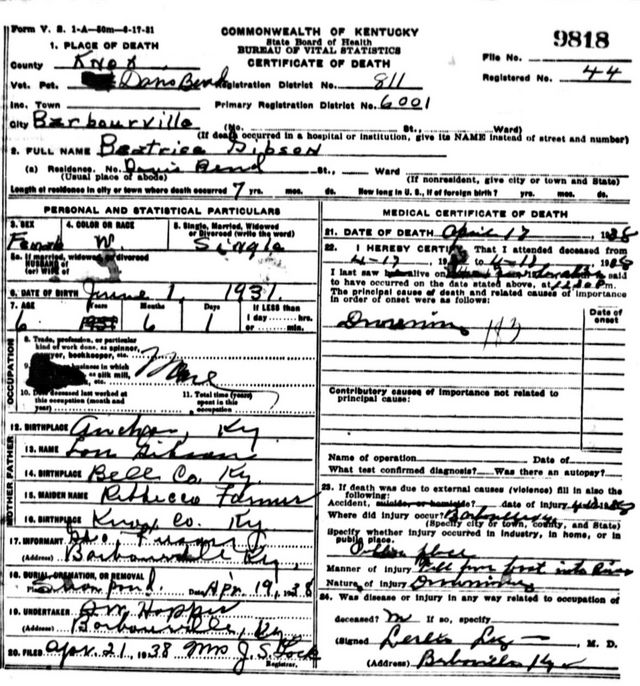 Form V. S. 1-A—50m—6-17-31
COMMONWEALTH OF KENTUCKY
State Board of Health
BUREAU OF VITAL STATISTICS
CERTIFICATE OF DEATH
9818
File No.
Registered No. 44
1. PLACE OF DEATH
County Knox
Vot. Pct. Davis Bend Registration District No. 811
Inc. Town Primary Registration District No. 6001
City Barbourville (No. St., Ward)
(If death occurred in a hospital or institution, give its NAME instead of street and number)
2. FULL NAME Beatrice Gibson
(a) Residence. No. Davis Bend St., Ward
(Usual place of abode) (If nonresident, give city or town and State)
Length of residence in city or town where death occurred 7 yrs. mos. ds. How long in U. S., if of foreign birth? yrs. mos. ds.
PERSONAL AND STATISTICAL PARTICULARS
3. SEX 4. COLOR OR RACE 5. Single, Married, Widowed or Divorced (write the word)
Female W Single
5a. If married, widowed or divorced
HUSBAND of
(or) WIFE of
6. DATE OF BIRTH June 1 1931
7. AGE Years Months Days If LESS than
6 6 1 1 day hrs.
or min.
OCCUPATION
8. Trade, profession, or particular
kind of work done, as spinner,
sawyer, bookkeeper, etc.
business in which
silk mill,
etc.
10. Date deceased last worked at
this occupation (month and
year)
11. Total time (years)
spent in this
occupation
12. BIRTHPLACE Ky
FATHER
13. NAME Gibson
14. BIRTHPLACE Bell Co. Ky
MOTHER
15. MAIDEN NAME Farmer
16. BIRTHPLACE Knox Co. Ky
17. INFORMANT
(Address) Barbourville Ky.
18. BURIAL, CREMATION, OR REMOVAL
Date Apr. 19, 1938
19. UNDERTAKER Hopper
(Address) Barbourville, Ky
20. FILED Apr. 21, 1938 Mrs J. S.
Registrar.
MEDICAL CERTIFICATE OF DEATH
21. DATE OF DEATH April 17 1938
22. I HEREBY CERTIFY, That I attended deceased from
4-17, 1938
I last saw h alive on said
to have occurred on the date stated above, at m.
The principal cause of death and related causes of importance
in order of onset were as follows:
Date of
onset
Drowning
Contributory causes of importance not related to
principal cause:
Name of operation Date of
What test confirmed diagnosis? Was there an autopsy?
23. If death was due to external causes (violence) fill in also the
following:
Accident, suicide, or homicide? date of injury
Where did injury occur?
(Specify city or town, county, and State)
Specify whether injury occurred in industry, in home, or in
public place.
place
Manner of injury Fell from boat into River
Nature of injury Drowning
24. Was disease or injury in any way related to occupation of
deceased? If so, specify
(Signed M. D.
(Address)